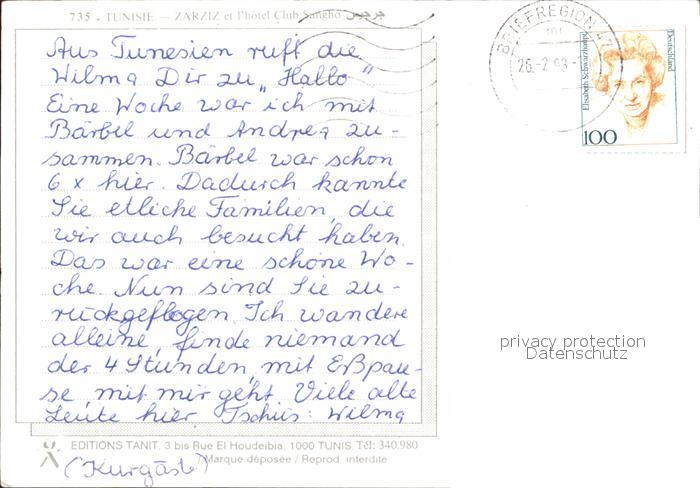 735 - TUNISIE — ZARZIZ et l'hôtel Club Sangho
Aus Tunesien ruft die
Wilma Dir zu „Hallo"
Eine Woche war ich mit
Bärbel und Andrea zu-
sammen. Bärbel war schon
6 x hier. Dadurch kannte
Sie etliche Familien, die
wir auch besucht haben.
Das war eine schöne Wo-
che. Nun sind Sie zu-
rückgeflogen. Ich wandere
alleine, finde niemand
der 4 Stunden, mit Eßpau-
se, mit mir geht. Viele alte
Leute hier Tschüs: Wilma
(Kurgäste)
EDITIONS TANIT, 3 bis Rue El Houdeibia, 1000 TUNIS. Tél: 340.980
Marque déposée / Reprod. interdite
BRIEFREGION 42
26.-2.93.-
Elisabeth Schwarzhaupt
Deutschland
100
privacy protection
Datenschutz